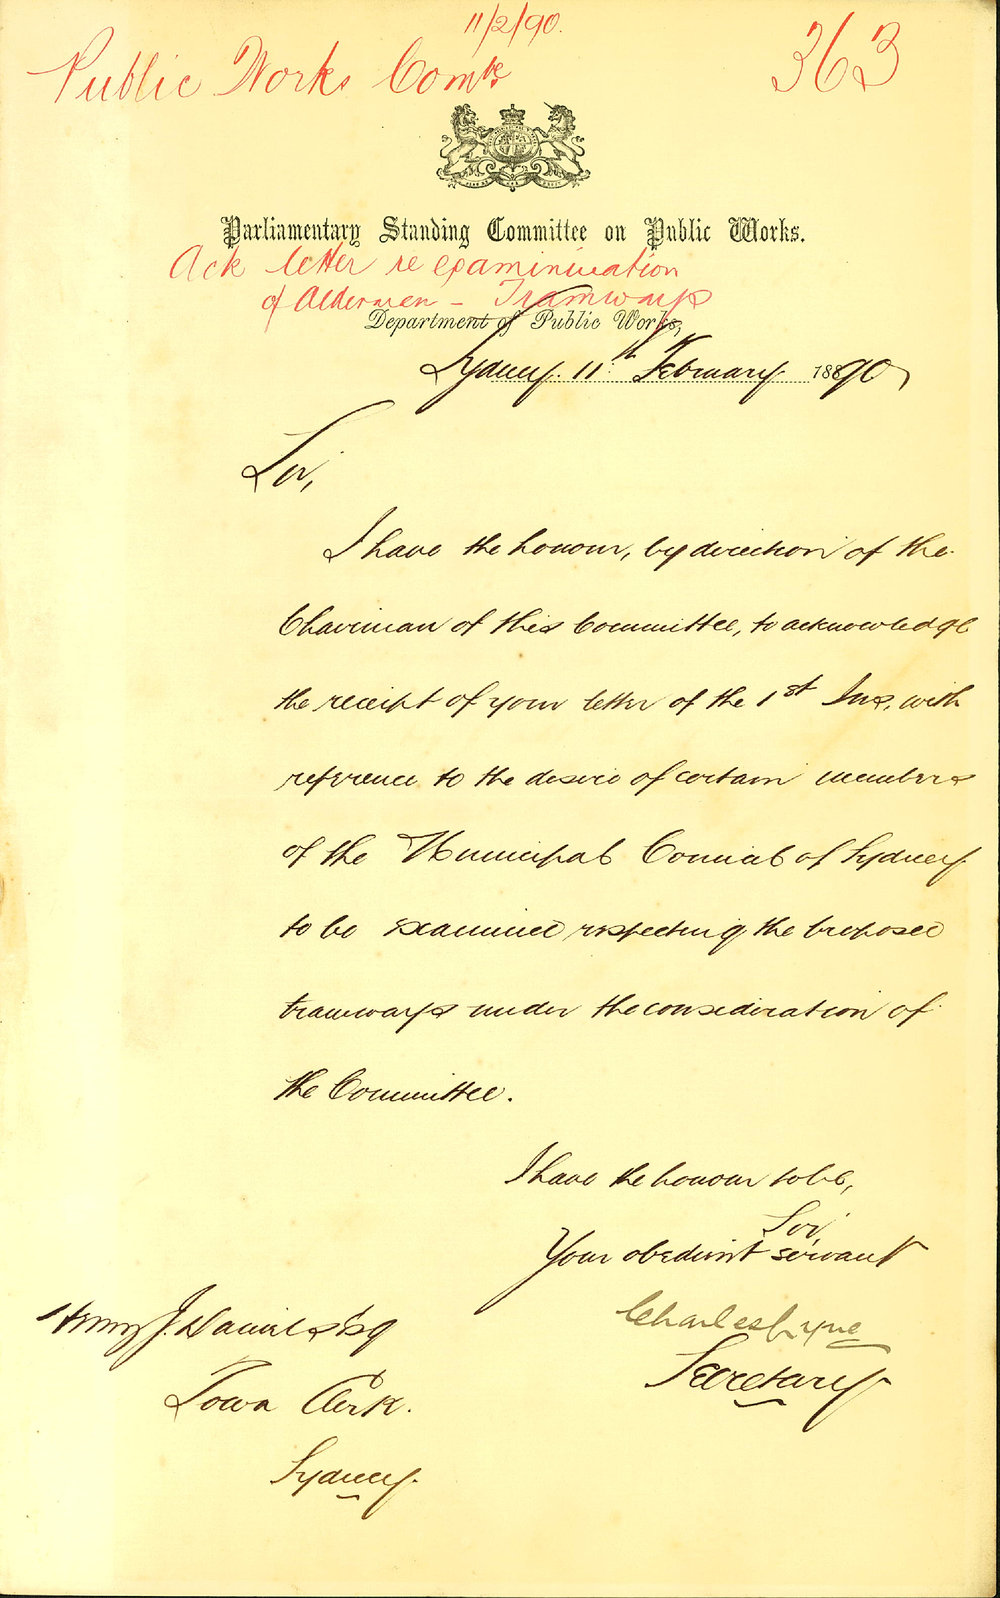 11/2/90.
Public Works Comtee
363
Parliamentary Standing Committee on Public Works.
Ack letter re examinination
of Aldermen - Tramways
Department of Public Works,
Sydney. 11th February 1890,
Sir,
I have the honour, by direction of the
Chairman of this Committee, to acknowledge
the receipt of your letter of the 1st Ins, with
reference to the desire of certain members
of the Municipal Council of Sydney
to be examined respecting the proposed
tramways under the consideration of
the Committee.
I have the honour to be,
Sir
Your obedient servant
Charles Lyne
Secretary
Henry J. Daniels Esq
Town Clerk.
Sydney.